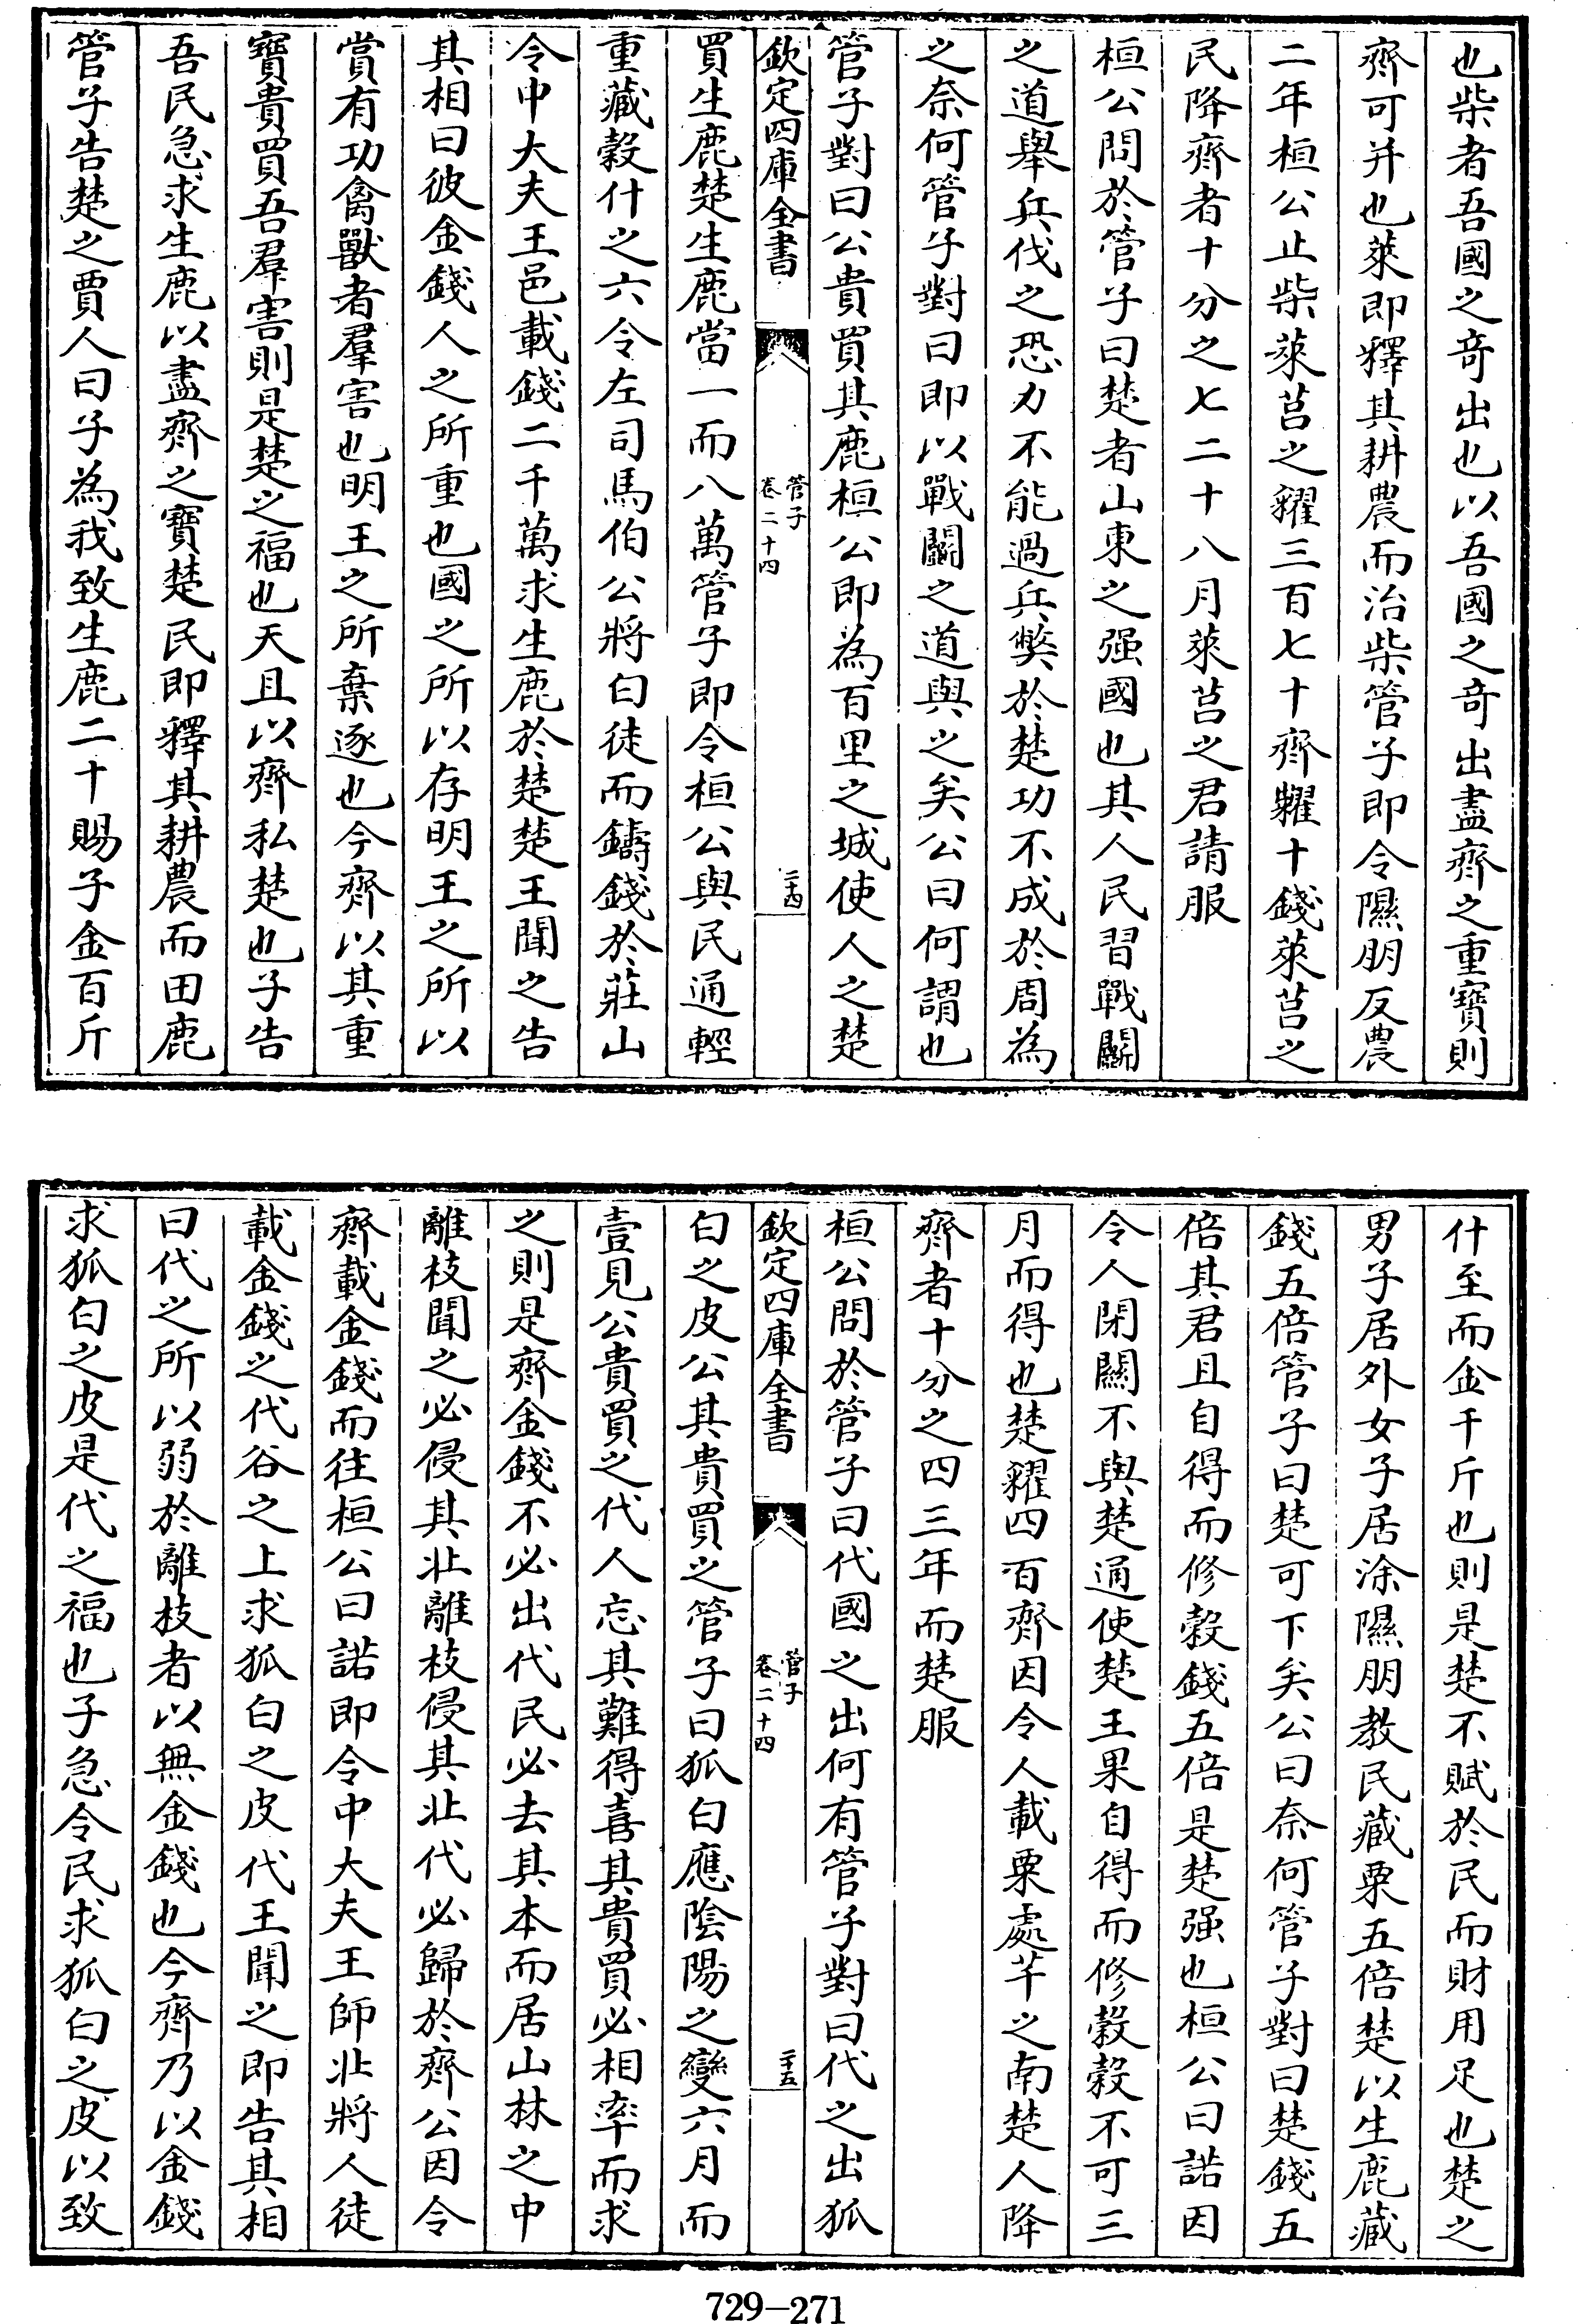 也柴者吾國之奇出也以吾國之奇出盡齊之重寶則
齊可并也萊即釋其耕農而治柴管子即令隰朋反農
二年桓公止柴萊莒之糴三百七十齊糶十錢萊莒之
民降齊者十分之七二十八月萊莒之君請服
桓公問於管子曰楚者山東之强國也其人民習戰鬭
之道舉兵伐之恐力不能過兵獘於楚功不成於周為
之奈何管子對曰即以戰鬭之道與之矣公曰何謂也
管子對曰公貴買其鹿桓公即為百里之城使人之楚
欽定四庫全書
管子
卷二十四
二十四
買生鹿楚生鹿當一而八萬管子即令桓公與民通輕
重藏穀什之六令左司馬伯公將白徒而鑄錢於莊山
令中大夫王邑載錢二千萬求生鹿於楚楚王聞之告
其相曰彼金錢人之所重也國之所以存明王之所以
賞有功禽獸者羣害也明王之所棄逐也今齊以其重
寶貴買吾羣害則是楚之福也天且以齊私楚也子告
吾民急求生鹿以盡齊之寶楚民即釋其耕農而田鹿
管子告楚之賈人曰子為我致生鹿二十賜子金百斤
什至而金千斤也則是楚不賦於民而財用足也楚之
男子居外女子居涂隰朋教民藏粟五倍楚以生鹿藏
錢五倍管子曰楚可下矣公曰奈何管子對曰楚錢五
倍其君且自得而修穀錢五倍是楚强也桓公曰諾因
令人閉關不與楚通使楚王果自得而修穀穀不可三
月而得也楚糴四百齊因令人載粟處芊之南楚人降
齊者十分之四三年而楚服
桓公問於管子曰代國之出何有管子對曰代之出狐
欽定四庫全書
管子
卷二十四
二十五
白之皮公其貴買之管子曰狐白應陰陽之變六月而
壹見公貴買之代人忘其難得喜其貴買必相率而求
之則是齊金錢不必出代民必去其本而居山林之中
離枝聞之必侵其北離枝侵其北代必歸於齊公因令
齊載金錢而往桓公曰諾即令中大夫王師北將人徒
載金錢之代谷之上求狐白之皮代王聞之即告其相
曰代之所以弱於離枝者以無金錢也今齊乃以金錢
求狐白之皮是代之福也子急令民求狐白之皮以致
729-271